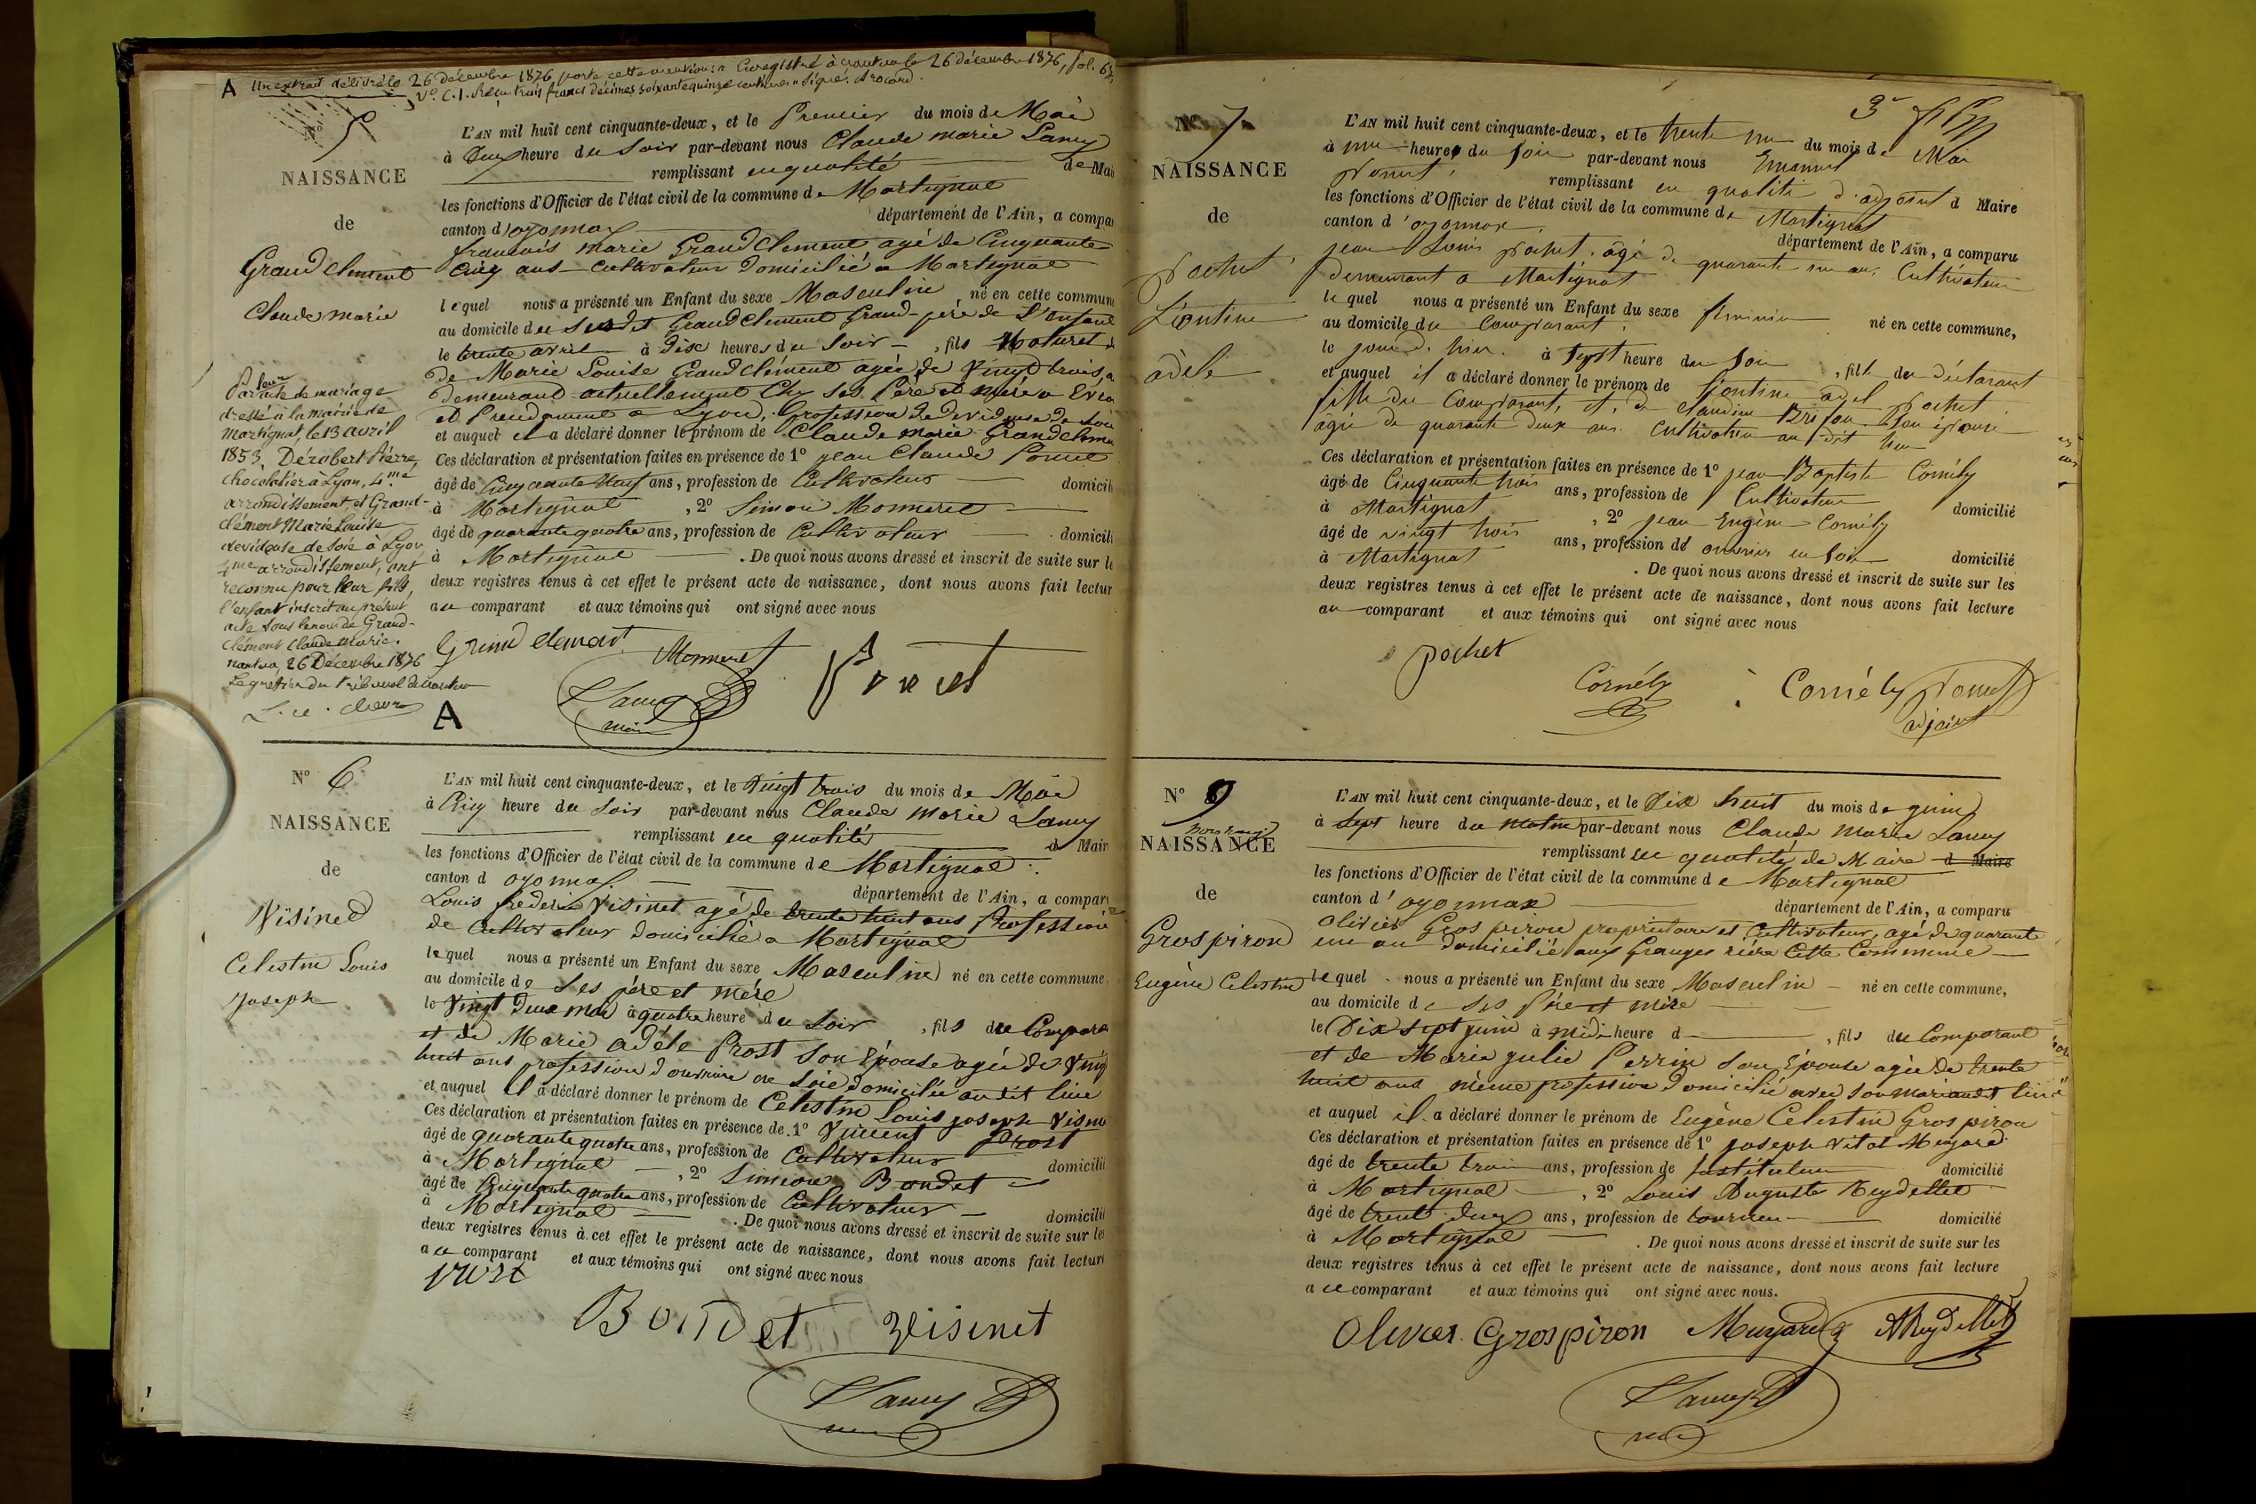 A Un extrait délivré le 26 Décembre 1876 porte cette mention: " Enregistré à Nantua le 26 décembre 1876, fol. 65,
Vo. C. 1. Reçu trois francs décimes soixante quinze centimes " Signé:
No 5
NAISSANCE
de
Grand Clement
Claude marie
Par acte de mariage
dressé à la mairie de
Martignat, le 13 avril
1853, Dérobert Pierre,
chocolatier à Lyon, 4.me
arrondissement, et Grand-
clément Marie Louise
devideuse de soie à Lyon
4me arrondissement, ont
reconnu pour leur fils,
l'enfant inscrit au présent
acte sous le nom de Grand-
Clément Claude Marie.
Nantua, 26 Décembre 1876
Le greffier du tribunal de Nantua
L'AN mil huit cent cinquante-deux, et le Premier du mois de Mai
à Deux heure du Soir par-devant nous Claude marie Lamy
remplissant en qualité de Mair
les fonctions d'Officier de l'état civil de la commune de Martignat
canton d'oyonnax département de l'Ain, a compar
francois marie Grand Clement agé de Cinquante
Cinq ans cultivateur domicilié a Martignat
lequel nous a présenté un Enfant du sexe Masculine né en cette commune
au domicile du Susdit Grand Clement Grand-père de L'enfant
le trente avril à Dix heures du Soir, fils Naturel
de Marie Louise Grand clément agée de Vingt trois,
demeurant actuellement Chez ses Père et mère a
et Précédemment a Lyon, Profession de devideuse de Soie
et auquel il a déclaré donner le prénom de Claude marie Grandcleme
Ces déclaration et présentation faites en présence de 1o jean Claude Ponnet
âgé de Cinquante Neuf ans, profession de Cultivateur domicili
à Martignat, 2o Simon Monneret
âgé de quarante quatre ans, profession de Cultivateur domicili
à Martignat. De quoi nous avons dressé et inscrit de suite sur le
deux registres tenus à cet effet le présent acte de naissance, dont nous avons fait lectur
au comparant et aux témoins qui ont signé avec nous
Grand clement Monneret Ponnet
Lamy
maire
A
No 6
NAISSANCE
de
Visined
Celestin Louis
Joseph
L'AN mil huit cent cinquante-deux, et le Vingt trois du mois de Mai
à Cinq heure du Soir par-devant nous Claude marie Lamy
remplissant en qualité d Mair
les fonctions d'Officier de l'état civil de la commune de Martignat
canton d oyonnax département de l'Ain, a compar
Louis frederic Visinet agé de trente huit ans Profession
de Cultivateur domicilié a Martignat
lequel nous a présenté un Enfant du sexe Masculine né en cette commune
au domicile de Ses père et mère
le Vingt Deux mai à quatre heure du Soir, fils du Compara
et de Marie adéle Prost Son Epouse agée de Vingt
huit ans profession d'ouvriere en Soie domiciliée audit lieu
et auquel il a déclaré donner le prénom de Celestin Louis joseph Visine
Ces déclaration et présentation faites en présence de 1o Vincent Prost
âgé de quarante quatre ans, profession de Cultivateur
à Martignat, 2o Simeon Bondet domicilié
âgé de Cinquante quatre ans, profession de Cultivateur
à Martignat domicilié
. De quoi nous avons dressé et inscrit de suite sur les
deux registres tenus à cet effet le présent acte de naissance, dont nous avons fait lecture
au comparant et aux témoins qui ont signé avec nous
prost
Bondet visinet
Lamy
maire
3e
No 7
NAISSANCE
de
pochet
Léontine
adèle
L'AN mil huit cent cinquante-deux, et le trente un du mois de Mai
à une heure du soir par-devant nous Emanuel
Ponnet, remplissant en qualité d'adjoint d Maire
les fonctions d'Officier de l'état civil de la commune de Martignat
canton d'oyonnax département de l'Ain, a comparu
jean Louis pochet. âgé de quarante un ans, Cultivateur
demeurant a Martignat
lequel nous a présenté un Enfant du sexe féminin né en cette commune,
au domicile du Comparant,
le jour d. hier. à sept heure du soir, fille du déclarant
et auquel il a déclaré donner le prénom de Léontine adel pochet.
fille du Comparant, et, de Claudine son épouse
âgée de quarante deux ans. Cultivatrice au dit lieu
Ces déclaration et présentation faites en présence de 1o jean Baptiste Cornély
âgé de Cinquante trois ans, profession de Cultivateur
à Martignat, 2o jean Eugène Cornély domicilié
âgé de vingt trois ans, profession d' ouvrier en soie
à Martignat domicilié
. De quoi nous avons dressé et inscrit de suite sur les
deux registres tenus à cet effet le présent acte de naissance, dont nous avons fait lecture
au comparant et aux témoins qui ont signé avec nous
pochet
Cornély Cornély Ponnet
adjoint
No 9
NAISSANCE
de
Grospiron
Eugène Celestin
L'AN mil huit cent cinquante-deux, et le Dix huit du mois de juin
à sept heure du matin par-devant nous Claude marie Lamy
remplissant en qualité de Maire d Maire
les fonctions d'Officier de l'état civil de la commune de Martignat
canton d'oyonnax département de l'Ain, a comparu
Olivier Gros piron propriétaire et Cultivateur, agé de quarante
un an domicilié aux Granges rière Cette Commune
lequel nous a présenté un Enfant du sexe Masculin né en cette commune,
au domicile de Ses Père et mère
le Dix sept juin à midi heure d, fils du Comparant
et de Marie julie Perrin Son Epouse agée de trente
huit ans même profession domicilié avec son mari audit lieu
et auquel il a déclaré donner le prénom de Eugène Celestin Gros piron
Ces déclaration et présentation faites en présence de 1o joseph vital Muyard
âgé de trente trois ans, profession de Instituteur domicilié
à Martignat, 2o Louis Auguste Reydellet
âgé de trente deux ans, profession de tourneur domicilié
à Martignat. De quoi nous avons dressé et inscrit de suite sur les
deux registres tenus à cet effet le présent acte de naissance, dont nous avons fait lecture
au comparant et aux témoins qui ont signé avec nous.
Olivier Grospiron Muyard AReydellet
Lamy
maire